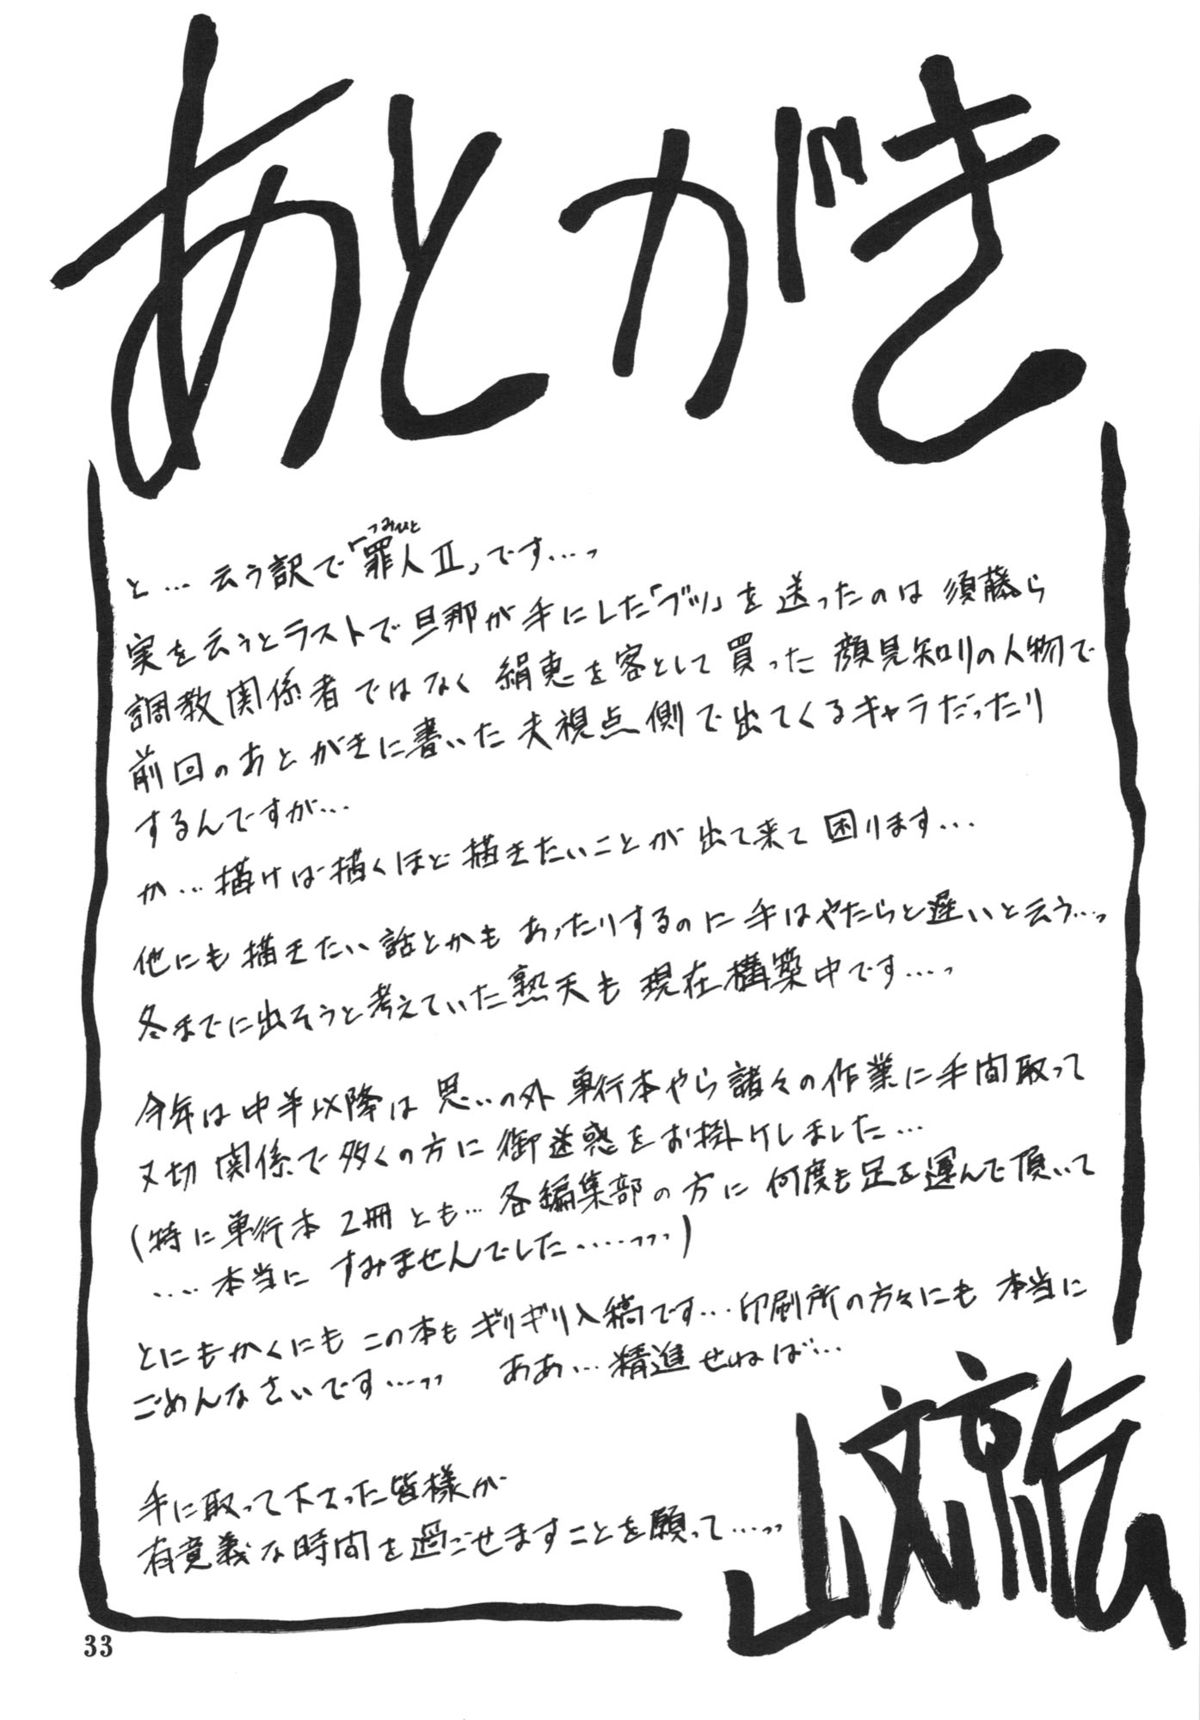 あとがき
と… 云う訳で「罪人Ⅱ」です…っ
つみひと
実を云うとラストで旦那が手にした「ブツ」を送ったのは 須藤ら
調教関係者ではなく 絹恵を客として買った 顔見知りの人物で
前回のあとがきに書いた夫視点側で出てくるキャラだったり
するんですが…
か…描けば描くほど描きたいことが出て来て困ります…
他にも描きたい話とかもあったりするのに手はやたらと遅いと云う…っ
冬までに出そうと考えていた熟天も現在構築中です…っ
今年は中半以降は思いの外単行本やら諸々の作業に手間取って
〆切関係で多くの方に御迷惑をお掛けしました…
(特に単行本2冊とも…各編集部の方に何度も足を運んで頂いて
‥‥本当にすみませんでした……っっっ)
とにもかくにもこの本もギリギリ入稿です…印刷所の方々にも本当に
ごめんなさいです…っっ ああ…精進せねば…
手に取って下さった皆様が
有意義な時間を過ごせますことを願って…っっ
山文京伝
33